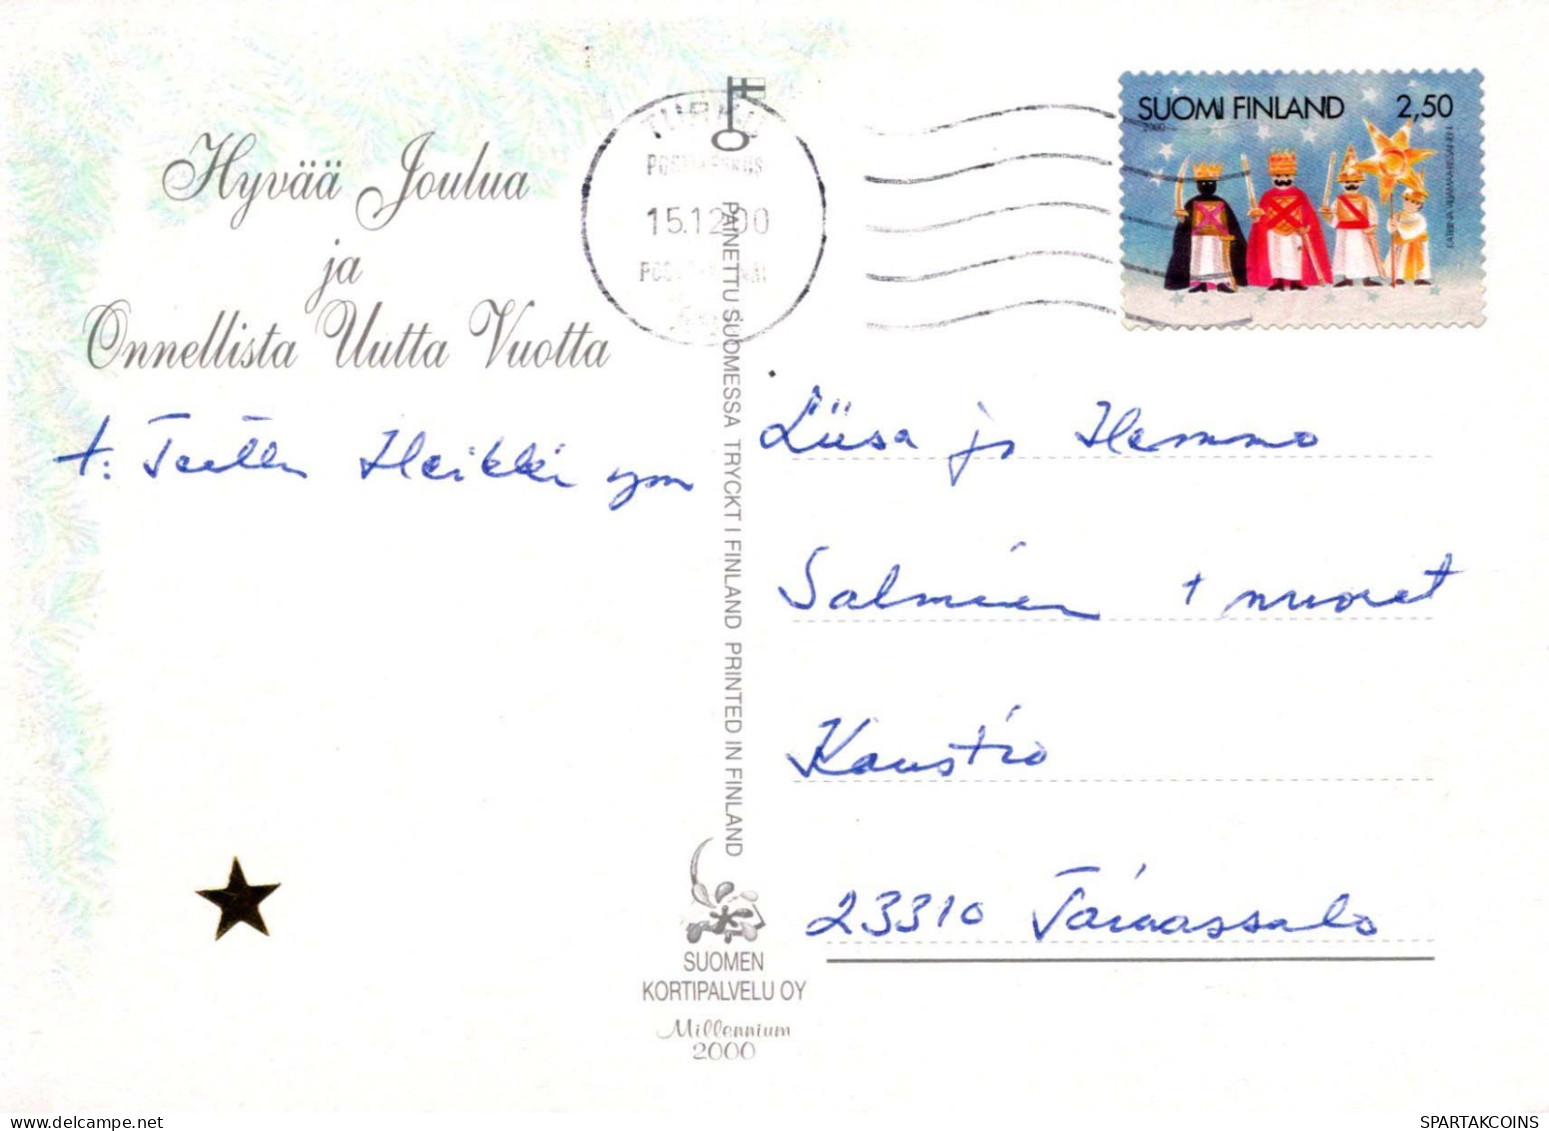 Hyvää Joulua
ja
Onnellista Uutta Vuotta
t: Terttu Heikki ym
TURKU
15.12.00
SUOMI FINLAND 2,50
2000
Liisa ja Hemmo
Salminen + nuoret
Kaustio
23310 Taivassalo
PAINETTU SUOMESSA TRYCKT I FINLAND PRINTED IN FINLAND
SUOMEN
KORTIPALVELU OY
Millennium
2000
SPARTAKCOINS